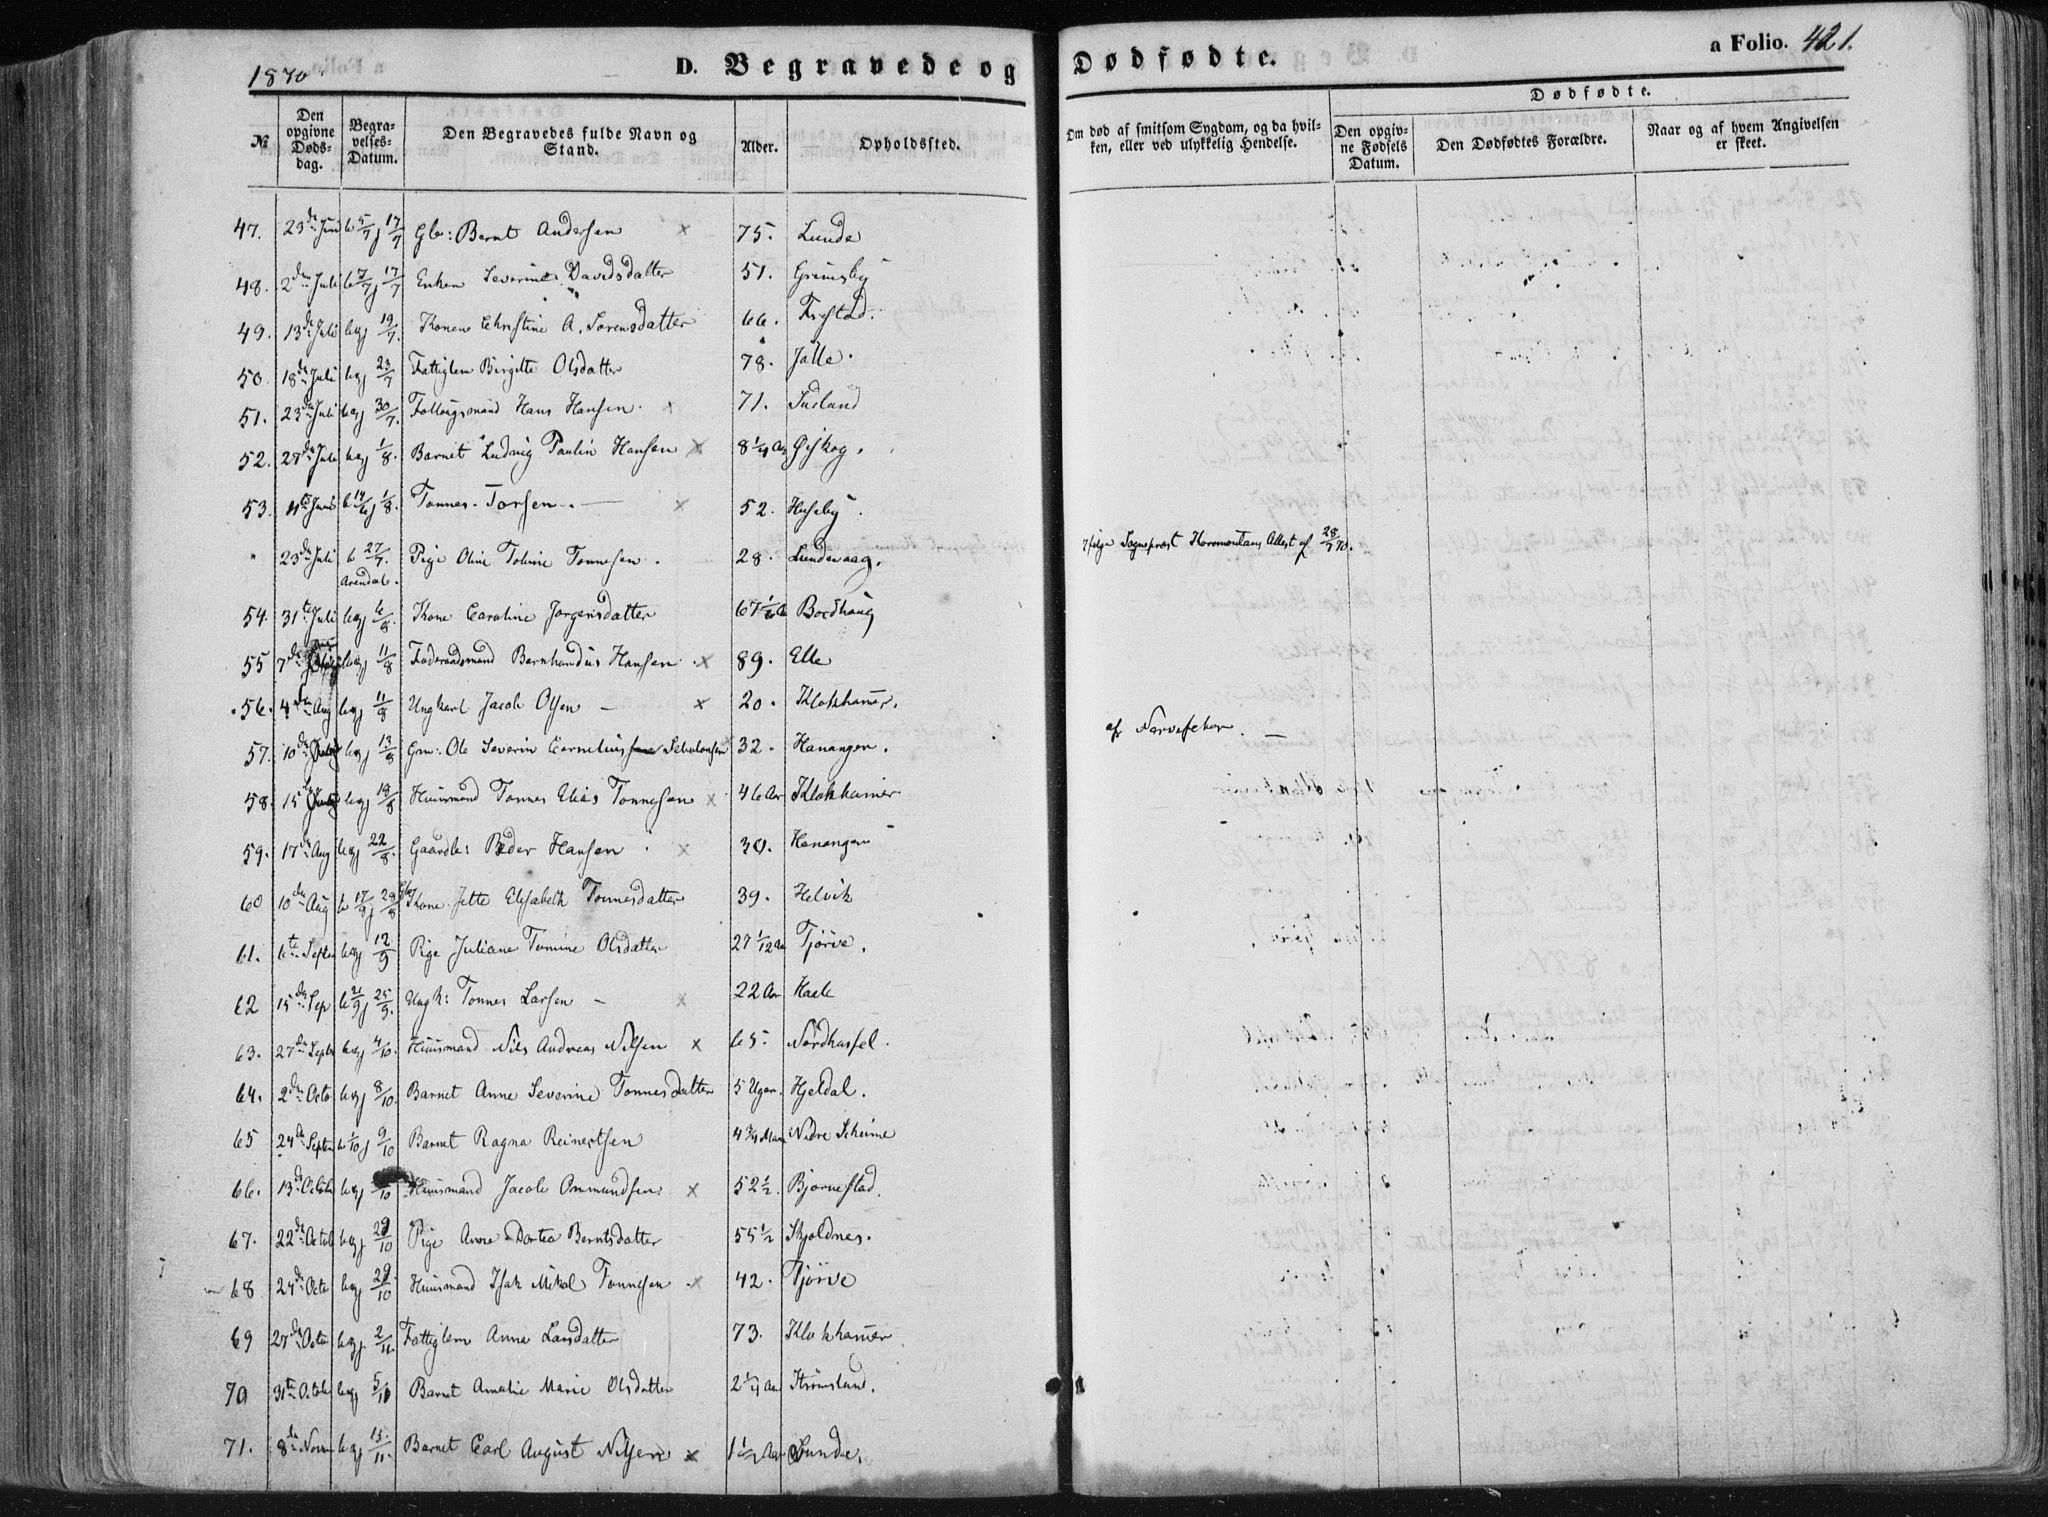 1870
D. Begravede og Dødfødte.
a Folio. 421.
№
Den opgivne Døds-dag.
Begra-velses-Datum.
Den Begravedes fulde Navn og Stand.
Alder.
Opholdssted.
Om død af smitsom Sygdom, og da hvil-ken, eller ved ulykkelig Hendelse.
Dødfødte.
Den opgiv-ne Fødsels Datum.
Den Dødfødtes Forældre.
Naar og af hvem Angivelsen er skeet.
47. 23de Juni b 5/7 j 17/7 Gbr: Bernt Andersen x 75. Lunde
48. 2den Juli b 7/7 j 17/7 Enken Severine Davidsdatter 51. Grimsby
49. 13de Juli b og j 19/7. Konen Christine A. Sørensdatter 66.
50. 18de Juli b og j 23/7 Fattiglem Birgitte Olsdatter 78. Jølle.
51. 23de Juli b og j 30/7. Hans Hansen. x 71.
52. 28de Juli b og j 1/8. Barnet Ludvig Paulin Hansen x 8 1/4 Aar
53. Juni b j 1/8. Tønnes Torsen. — x 52. Huseby.
" 23de Juli b 27/7. Arendal. Pige Oline Tobine Tønnesen. 28. Lundevaag. Ifølge Sogneprest Attest af 28/7 70.
54. 31te Juli b og j 6/8. Kone Caroline Jørgensdatter 67 1/2 Bordhaug
55 7de b og j 11/8 Føderaadsmand Bernhardus Hansen. x 89. Elle
56. 4de Aug b og j 11/8 Ungkarl Jacob Olsen — x 20. Klokhamer. af Nervefeber. —
57. 10de b og j 13/8 Grm: Ole Severin Cornelius 32. Hananger.
58. 15de b og j 18/8 Huusmand Tønnes Elias Tønnesen x 46 Aar Klokhamer
59. 17de Aug b og j 22/8. Gaardbr: Peder Hansen. x 30. Hananger
60 10de Aug b 17/8 j 28/8 Kone Jette Elisabeth Tønnesdatter 39. Helvik
61. 6te Septe b og j 12/9 Pige Juliane Tomine Olsdatter 27 1/12 Aar Tjørve.
62 15de Sep b 21/9 j 25/9. Ungk: Tønnes Larsen — x 22 Aar Haale
63. 27de Septb b og j 4/10. Huusmand Nils Andreas Nilsen x 65. Nordhassel.
64. 2den Octo b og j 8/10. Barnet Anne Severine Tønnesdatter 5 Uger. Hjeldal.
65 24de Septe b 1/10 j 9/10 Barnet Ragna Reinertsen 4 3/4 Maan Nedre Scheime
66. 13de Octob b og j /10 Huusmand Jacob Ommundsen x 52 1/2. Bjørnestad.
67. 22de Octob b og j 29/10 Pige Anne Dortea Berntsdatter 55 1/2 Skjoldnes.
68 24de Octo b og j 29/10 Huusmand Isak Mikal Tønnesen x 42. Tjørve
69 27de Octo b og j 2/11. Fattiglem Anna Larsdatter 73. Klokhamer
70 31te Octob b og j 5/11 Barnet Amalie Marie Olsdatter 2 1/4 Aar Strømsland.
71. 8de Novem b og j 15/11. Barnet Carl August Nilsen x 1 1/2 Aar Lunde.